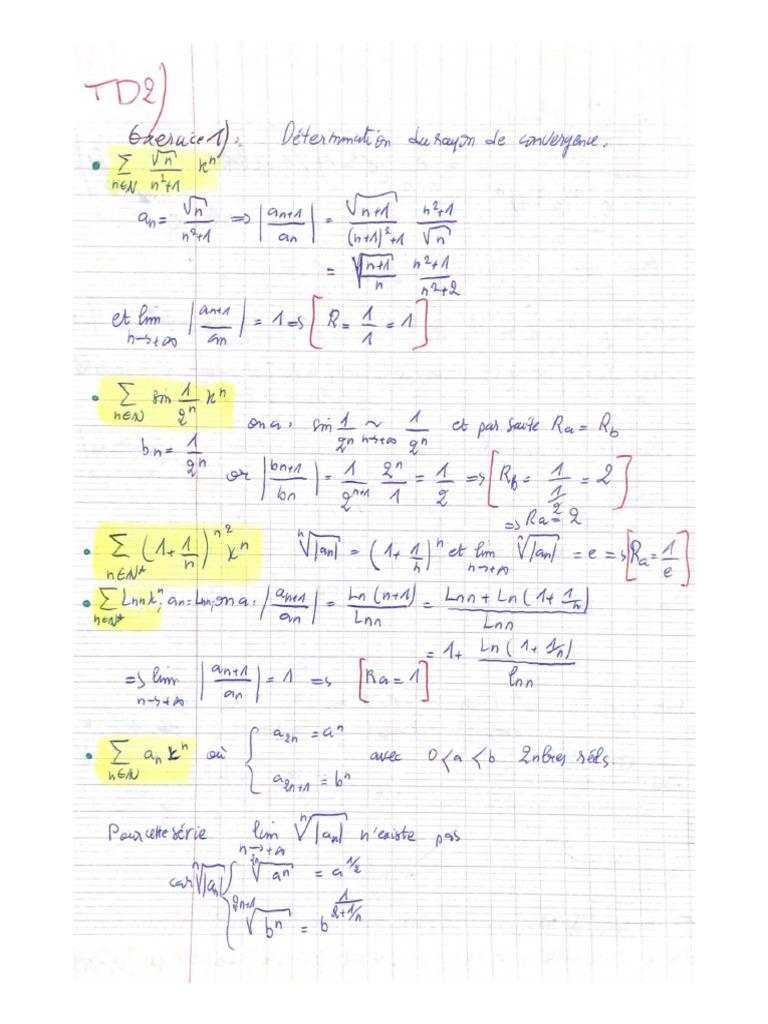 TD2)
Exercice 1) : Détermination du rayon de convergence.
• ∑_{n∈ℕ} √n/(n²+1) xⁿ
aₙ = √n/(n²+1) => |aₙ₊₁/aₙ| = √(n+1)/((n+1)²+1) (n²+1)/√n
= √((n+1)/n) (n²+1)/(n²+2)
et lim_{n→+∞} |aₙ₊₁/aₙ| = 1 => [R = 1/1 = 1]
• ∑_{n∈ℕ} sin 1/2ⁿ xⁿ on a : sin 1/2ⁿ ~_{n→+∞} 1/2ⁿ et par suite Ra = Rb
bₙ = 1/2ⁿ or |bₙ₊₁/bₙ| = 1/2ⁿ⁺¹ 2ⁿ/1 = 1/2 => [Rb = 1/(1/2) = 2]
=> Ra = 2
• ∑_{n∈ℕ*} (1 + 1/n)^{n²} xⁿ ⁿ√|aₙ| = (1 + 1/n)ⁿ et lim_{n→+∞} ⁿ√|aₙ| = e => [Ra = 1/e]
• ∑_{n∈ℕ*} Ln n xⁿ, aₙ = Ln n, on a : |aₙ₊₁/aₙ| = Ln(n+1)/Ln n = (Ln n + Ln(1 + 1/n))/Ln n
= 1 + Ln(1 + 1/n)/ln n
=> lim_{n→+∞} |aₙ₊₁/aₙ| = 1 => [Ra = 1]
• ∑_{n∈ℕ} aₙ xⁿ où { a₂ₙ = aⁿ
a₂ₙ₊₁ = bⁿ avec 0 < a < b 2 nbres réels.
Pour cette série lim_{n→+∞} ⁿ√|aₙ| n'existe pas
car ⁿ√|aₙ| { ²ⁿ√aⁿ = a^{1/2}
²ⁿ⁺¹√bⁿ = b^{1/(2+1/n)}